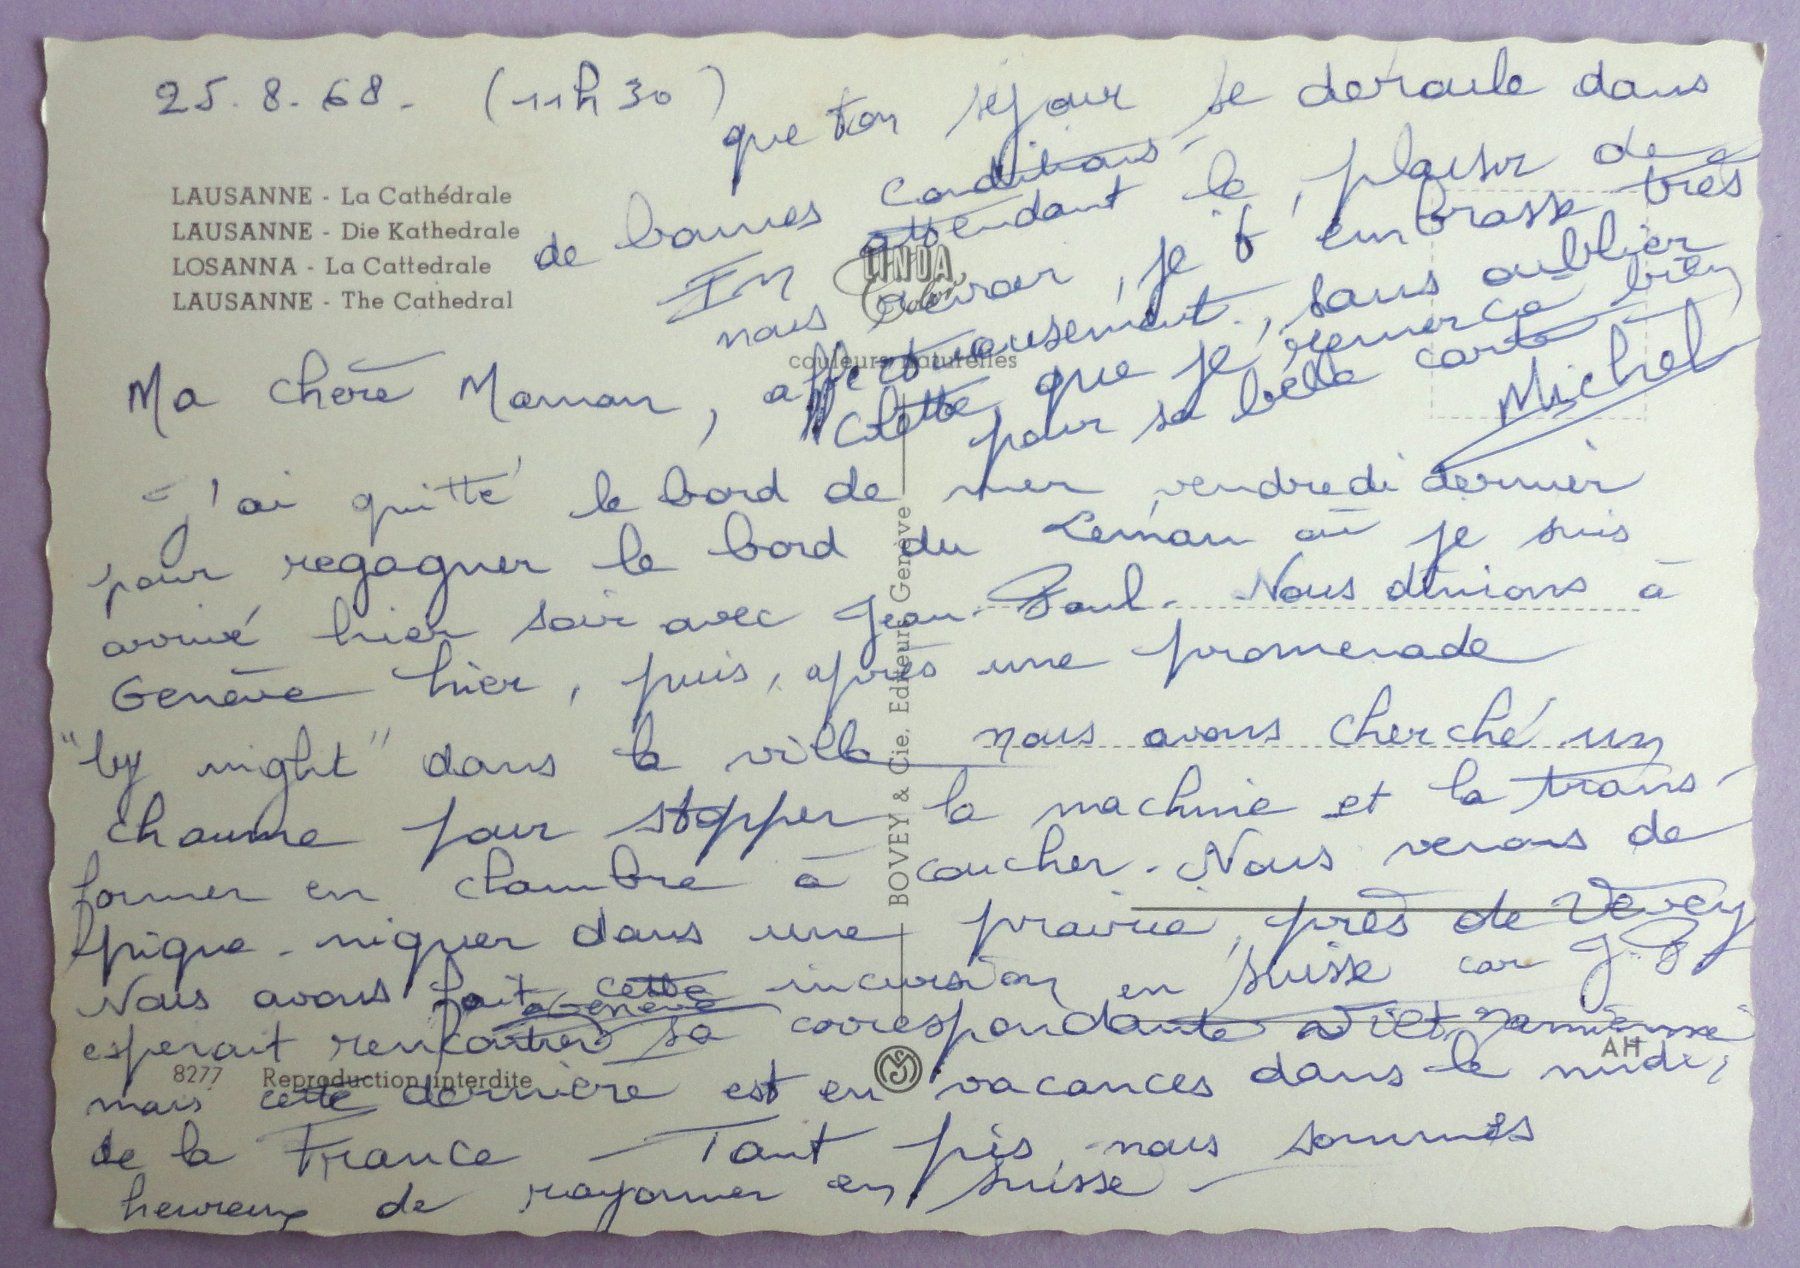 25.8.68. (11h30)
LAUSANNE - La Cathédrale
LAUSANNE - Die Kathedrale
LOSANNA - La Cattedrale
LAUSANNE - The Cathedral
LINDA
Color
couleurs naturelles
Ma chère Maman,
- J'ai quitté le bord de mer vendredi dernier
pour regagner le bord du Léman où je suis
arrivé hier soir avec Jean-Paul. Nous dînions à
Genève hier, puis, après une promenade
"by night" dans la ville nous avons cherché un
chaume pour stopper la machine et la trans-
former en chambre à coucher. Nous venons de
pique-niquer dans une prairie, près de Vevey
Nous avons fait cette incursion en Suisse car J.P
espérait rencontrer à Genève sa correspondante vietnamienne
mais cette dernière est en vacances dans le midi,
de la France - Tant pis, nous sommes
heureux de rayonner en Suisse -
que ton séjour se déroule dans
de bonnes conditions -
En attendant le plaisir de
nous revoir, je t'embrasse très
affectueusement, sans oublier
Colette que je remercie bien
pour sa belle carte
Michel
BOVEY & Cie. Editeurs Genève
8277 Reproduction interdite
AH